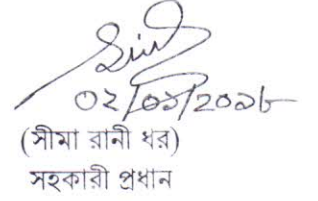 ০২/০১/২০১৮
(সীমা রানী ধর)
সহকারী প্রধান